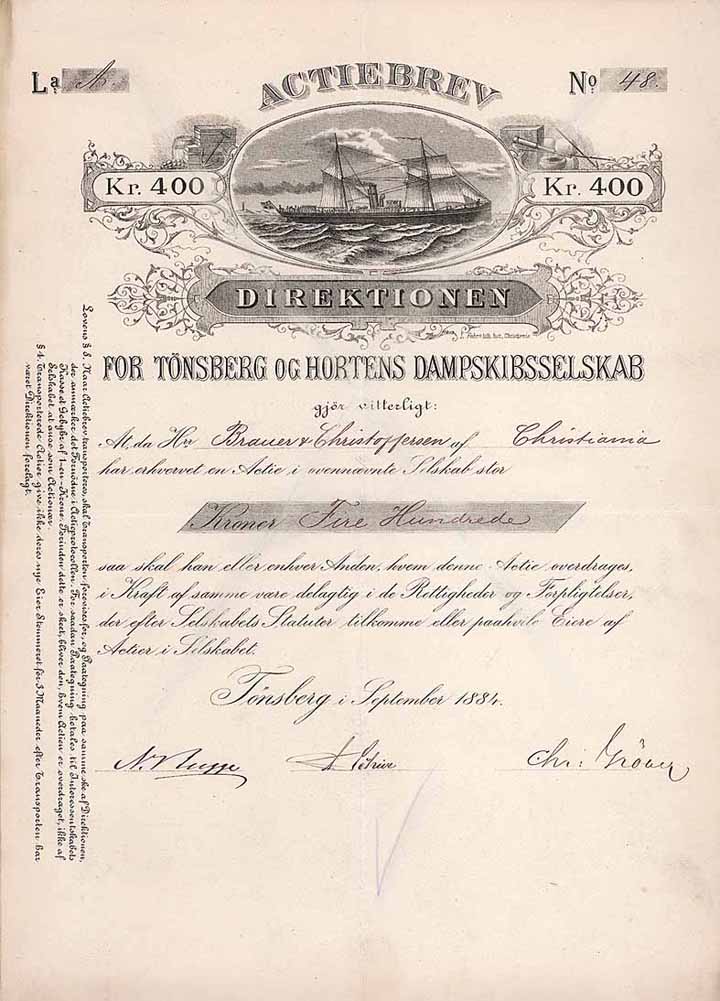 La. A.
No. 48.
ACTIEBREV
Kr. 400
Kr. 400
DIREKTIONEN
Christiania
FOR TÖNSBERG OG HORTENS DAMPSKIBSSELSKAB
gjör vitterligt:
At, da Hrr Brauer & Christoffersen af Christiania
har erhvervet en Actie i ovennævnte Selskab stor
Kroner Fire Hundrede
saa skal han eller enhver Anden, hvem denne Actie overdrages,
i Kraft af samme være delagtig i de Rettigheder og Forpligtelser,
der efter Selskabets Statuter tilkomme eller paahvile Eiere af
Actier i Selskabet.
Tönsberg i September 1884.
Chr: Gröner
Lovens § 8. Naar Actiebrev transporteres, skal Transporten forevises for, og Paategning paa samme ske af Direktionen,
der anmærker det Fornödne i Actieprotocollen. For saadan Paategning betales til Interessentskabets
Kasse et Gebyhr af 1-en-Krone. Forinden dette er skeet, bliver den, hvem Actien er overdraget, ikke af
Selskabet at anse som Actionær.
§ 4. Transporterede Actier give ikke deres nye Eier Stemmeret för 3 Maaneder efter Transporten har
været Direktionen forelagt.